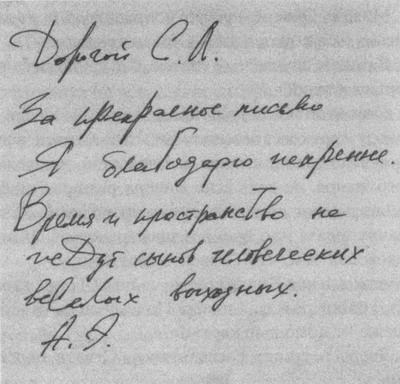 Дорогой С. А.
За прекрасное письмо
Я благодарю искренне.
Время и пространство не
ждут сынов человеческих
веселых выходных.
А. Э.